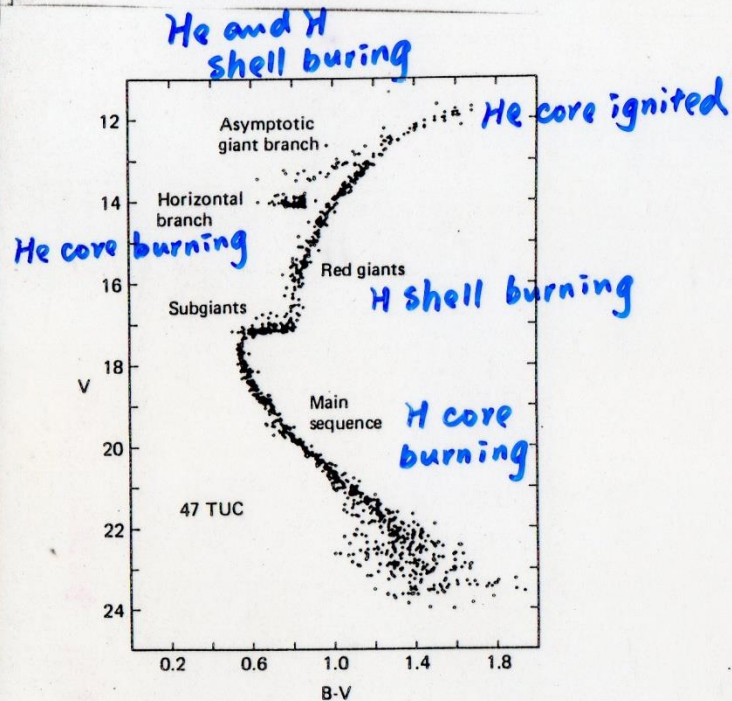 He and H
shell buring
12
He core ignited
Asymptotic
giant branch
14
Horizontal
branch
He core burning
Red giants
16
H shell burning
Subgiants
18
V
Main
sequence
H core
burning
20
47 TUC
22
24
0.2 0.6 1.0 1.4 1.8
B-V